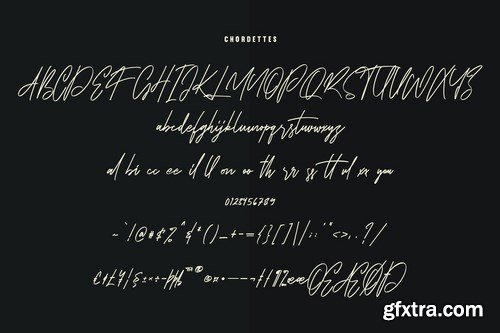 CHORDETTES
ABCDEFGHIJKLMNOPQRSTUVWXYZ
abcdefghijklmnopqrstuvwxyz
al bi cc ee il ll on oo th rr ss tt ul xx you
0123456789
~`!@#$%^&*()_+-={}[]\|;:'"<>,.?/
gfxtra.com